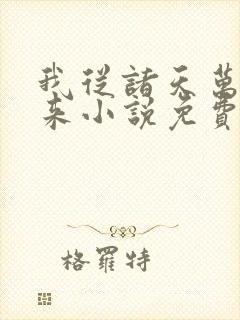 我從諸天萬
來小說免費
格羅特